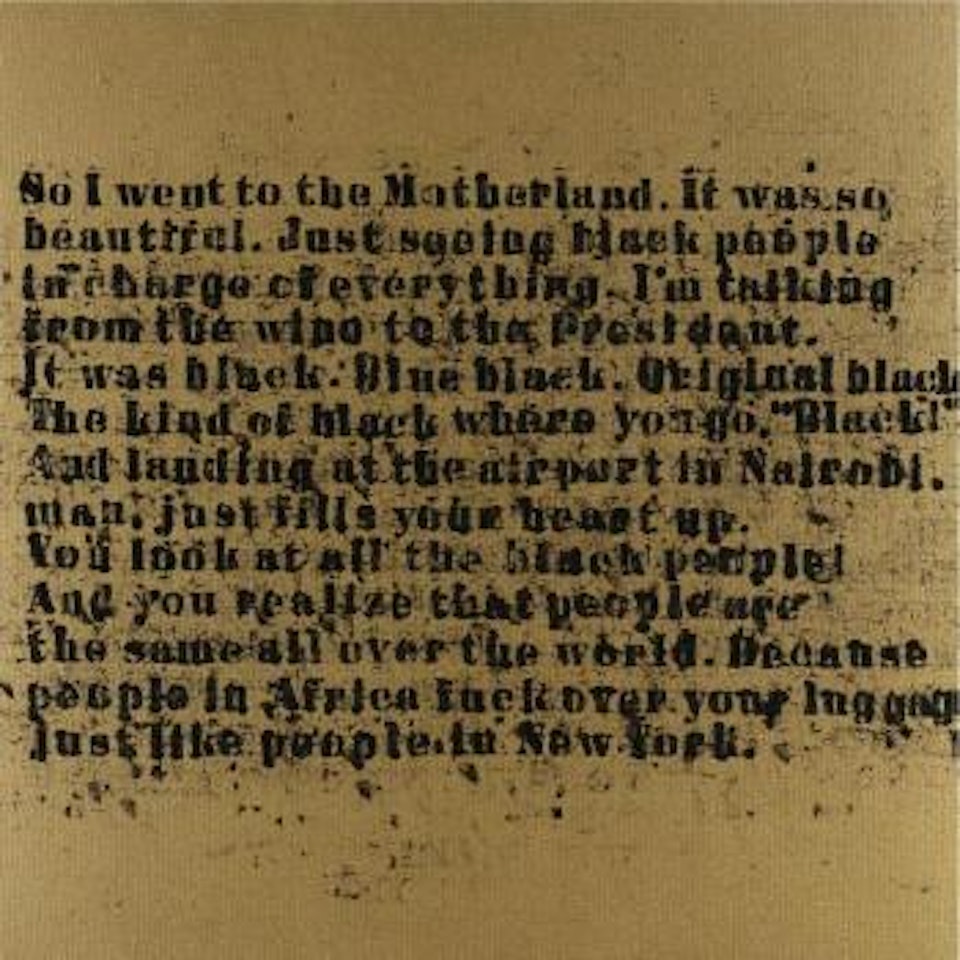 So I went to the Motherland. It was so
beautiful. Just seeing black people
in charge of everything. I'm talking
from the wino to the President.
It was black. Blue black. Original black
The kind of black where you go, "Black!"
And landing at the airport in Nairobi,
man, just fills your heart up.
You look at all the black people!
And you realize that people are
the same all over the world. Because
people in Africa fuck over your luggag
just like people in New York.